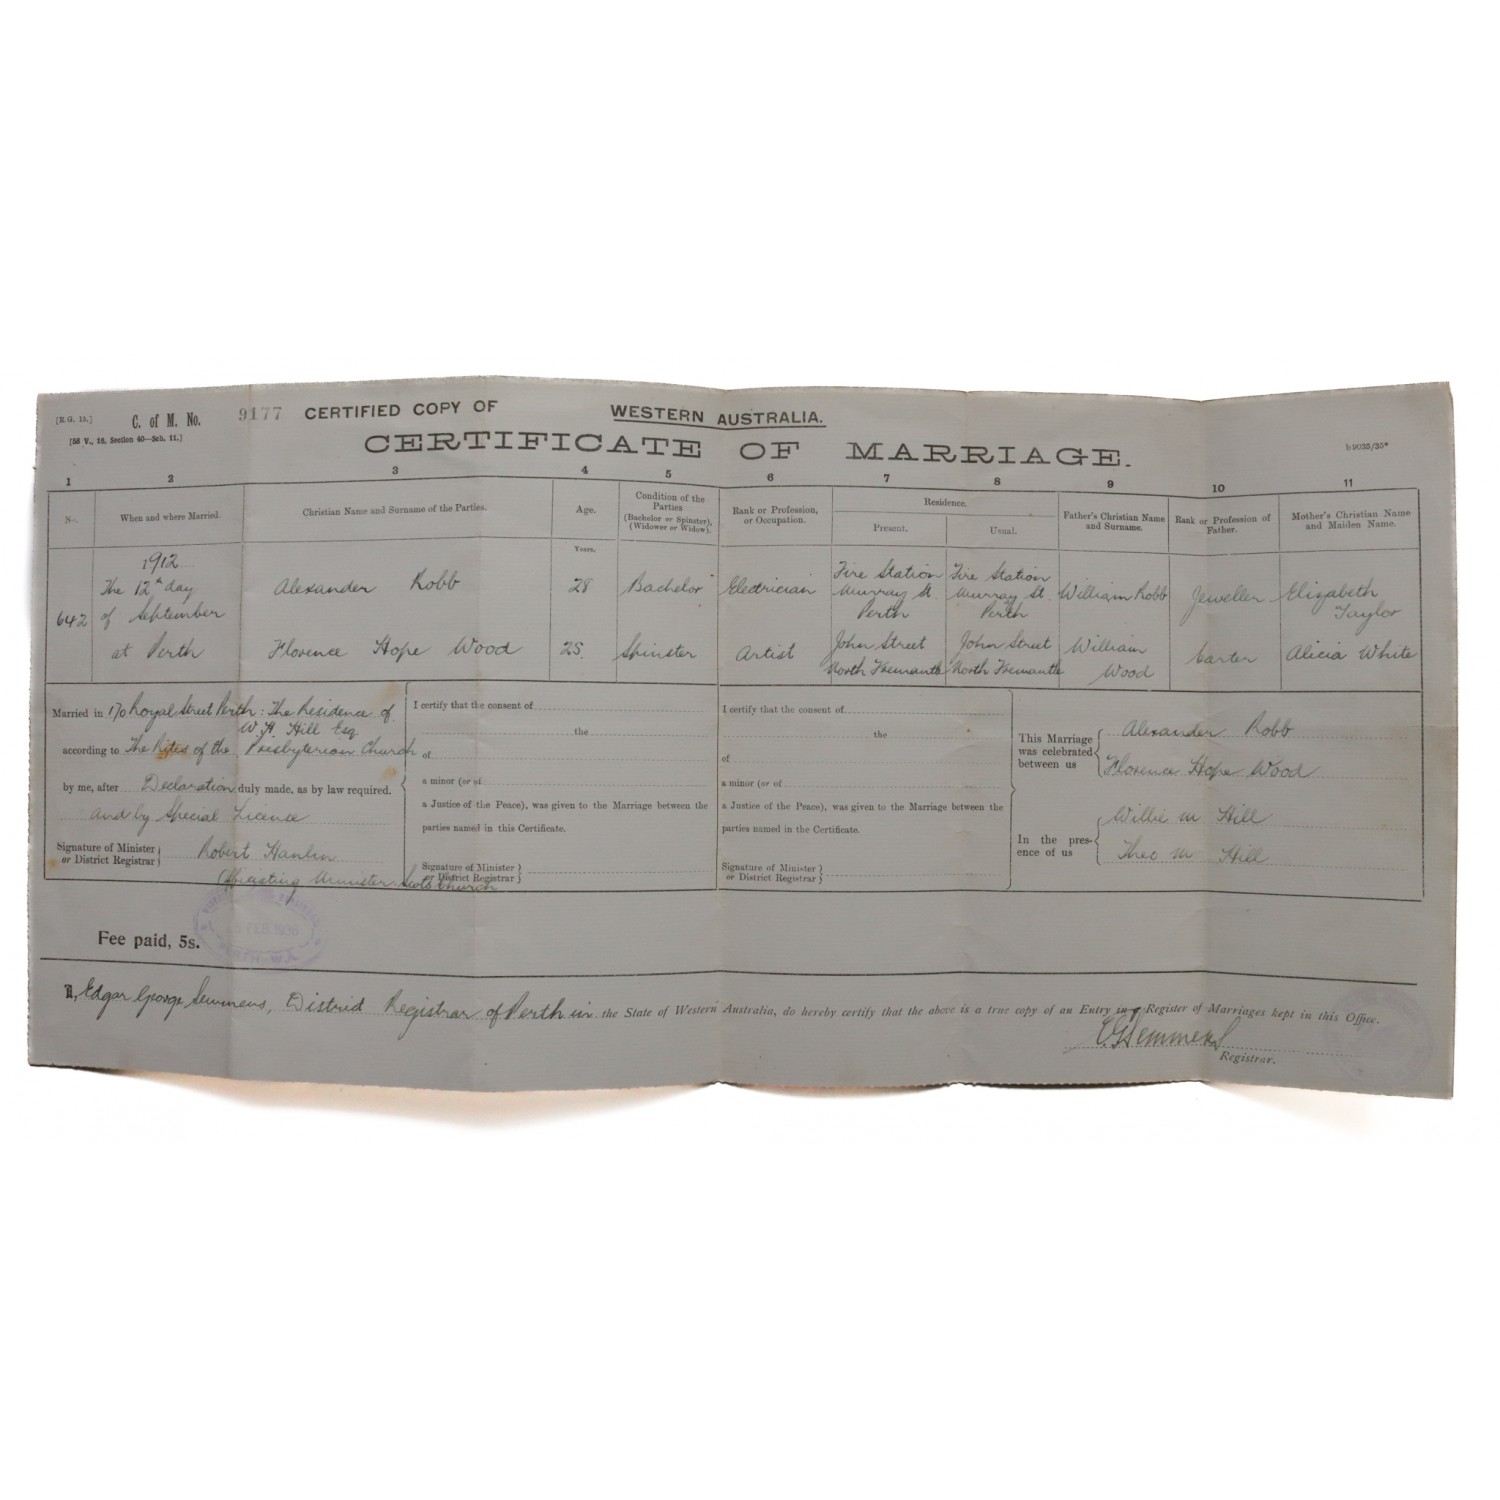 [R.G. 15.] C. of M. No. 9177 CERTIFIED COPY OF WESTERN AUSTRALIA.
[58 V., 16, Section 40—Sch. 11.] CERTIFICATE OF MARRIAGE. b9035/35*
1 2 3 4 5 6 7 8 9 10 11
No. When and where Married. Christian Name and Surname of the Parties. Age. Condition of the Parties (Bachelor or Spinster), (Widower or Widow). Rank or Profession, or Occupation. Residence. Present. Usual. Father's Christian Name and Surname. Rank or Profession of Father. Mother's Christian Name and Maiden Name.
Years.
1912
The 12th day Alexander Robb 28 Bachelor Electrician Fire Station Murray St. Perth Fire Station Murray St. Perth William Robb Jeweller Elizabeth Taylor
642 of September
at Perth Florence Hope Wood 25. Spinster Artist John Street North Fremantle John Street North Fremantle William Wood Carter Alicia White
Married in 170 Royal Street Perth: The Residence of
W. H. Hill Esq.
according to The Rites of the Presbyterian Church
by me, after Declaration duly made, as by law required.
and by Special Licence
Signature of Minister or District Registrar Robert Hanlin
Officiating Minister Scots Church
I certify that the consent of
the
of
a minor (or of
a Justice of the Peace), was given to the Marriage between the
parties named in this Certificate.
Signature of Minister
or District Registrar
I certify that the consent of
the
of
a minor (or of
a Justice of the Peace), was given to the Marriage between the
parties named in the Certificate.
Signature of Minister
or District Registrar
This Marriage was celebrated between us
Alexander Robb
Florence Hope Wood
In the presence of us
Willie M Hill
Theo M Hill
Fee paid, 5s.
FEB 1936
I, Edgar George Semmens, District Registrar of Perth in the State of Western Australia, do hereby certify that the above is a true copy of an Entry in a Register of Marriages kept in this Office.
E G Semmens
Registrar.